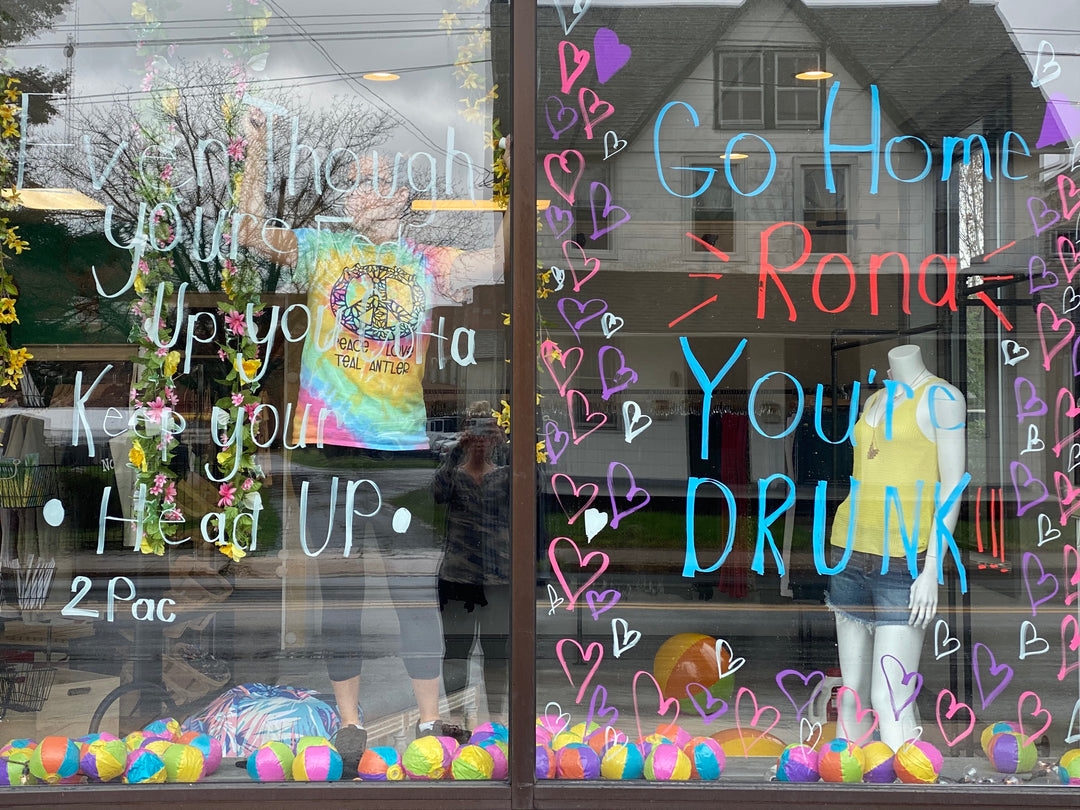 Even Though
you're Fed
Up you Gotta
Keep your
• Head UP •
2Pac
PEACE LOVE
TEAL ANTLER
Go Home
Rona
You're
DRUNK!!